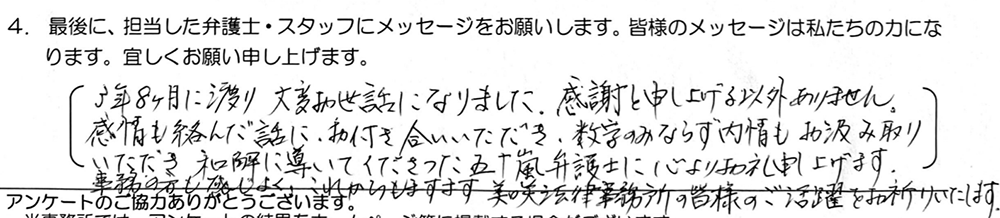 4. 最後に、担当した弁護士・スタッフにメッセージをお願いします。皆様のメッセージは私たちの力にな
ります。宜しくお願い申し上げます。
5年8ヶ月に渡り 大変お世話になりました。感謝と申し上げる以外ありません。
感情も絡んだ話に、お付き合いいただき、数字のみならず内情も お汲み取り
いただき 和解に導いてくださった五十嵐弁護士に心よりお礼申し上げます。
事務の方も感じよく、これからもますます 美咲法律事務所の皆様のご活躍をお祈りいたします
アンケートのご協力ありがとうございます。